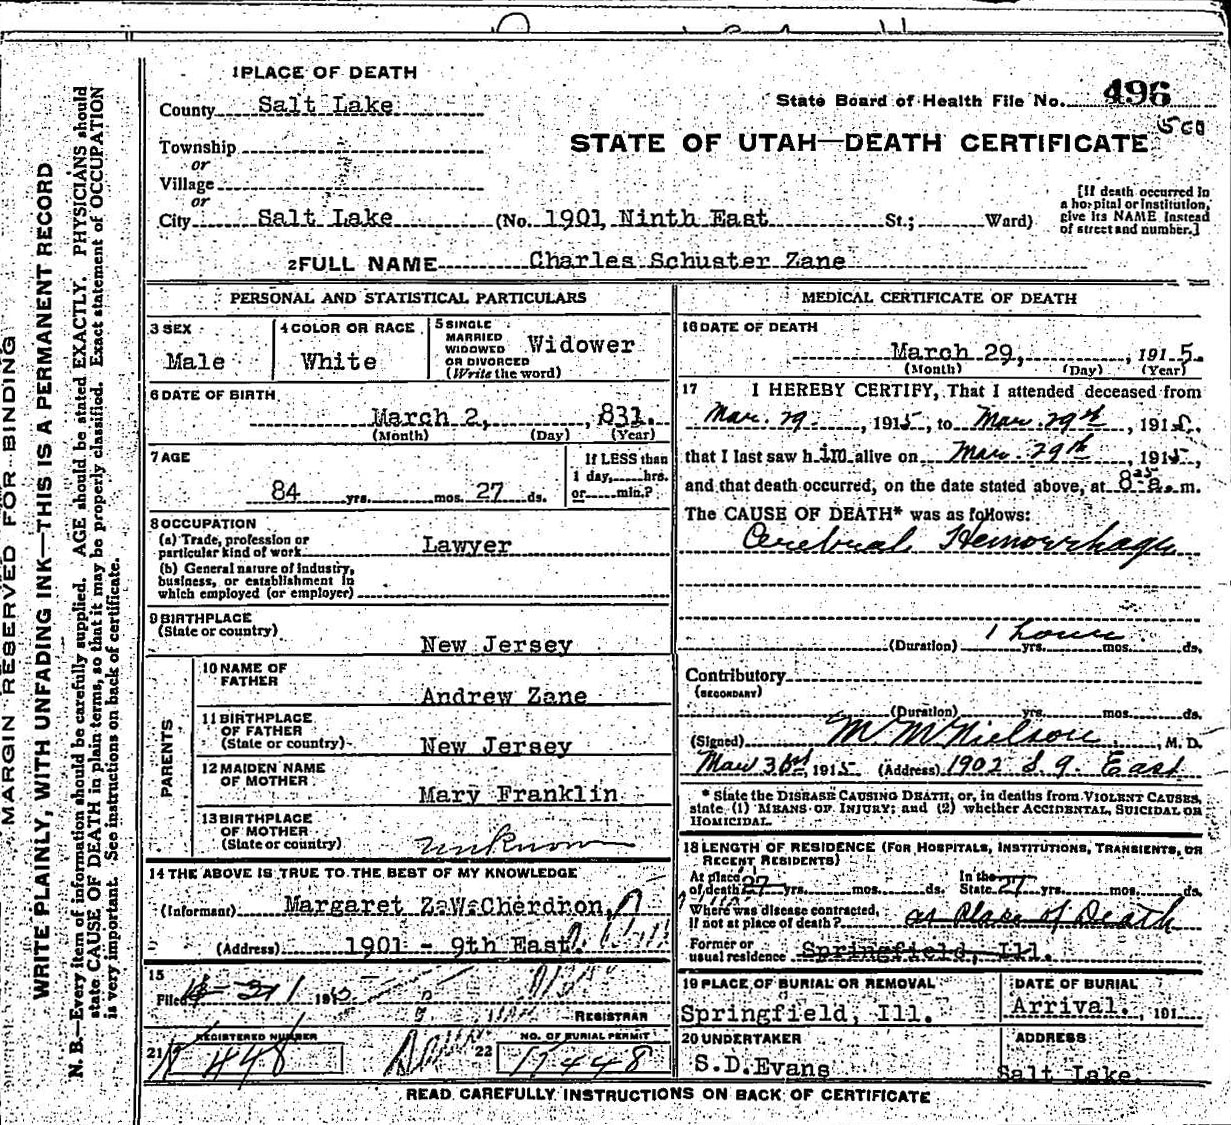 1 PLACE OF DEATH
County Salt Lake
State Board of Health File No. 496
Township
or
Village
or
STATE OF UTAH—DEATH CERTIFICATE
City Salt Lake (No. 1901, Ninth East St.; Ward)
[If death occurred in
a hospital or institution,
give its NAME instead
of street and number.]
2 FULL NAME Charles Schuster Zane
PERSONAL AND STATISTICAL PARTICULARS
3 SEX
Male
4 COLOR OR RACE
White
5 SINGLE
MARRIED
WIDOWED
OR DIVORCED
(Write the word)
Widower
6 DATE OF BIRTH
March 2, , 831.
(Month) (Day) (Year)
7 AGE
84 yrs. mos. 27 ds.
If LESS than
1 day, hrs.
or min.?
8 OCCUPATION
(a) Trade, profession or
particular kind of work Lawyer
(b) General nature of industry,
business, or establishment in
which employed (or employer)
9 BIRTHPLACE
(State or country)
New Jersey
PARENTS
10 NAME OF
FATHER
Andrew Zane
11 BIRTHPLACE
OF FATHER
(State or country)
New Jersey
12 MAIDEN NAME
OF MOTHER
Mary Franklin
13 BIRTHPLACE
OF MOTHER
(State or country)
unknown
14 THE ABOVE IS TRUE TO THE BEST OF MY KNOWLEDGE
(Informant) Margaret Z.W. Cherdron,
(Address) 1901 - 9th East
15
Filed 191
REGISTRAR
21 REGISTERED NUMBER
22 NO. OF BURIAL PERMIT
MEDICAL CERTIFICATE OF DEATH
16 DATE OF DEATH
March 29, , 1915.
(Month) (Day) (Year)
17 I HEREBY CERTIFY, That I attended deceased from
Mar. 29. , 1915, to Mar. 29th , 1915,
that I last saw him alive on Mar. 29th , 1915,
and that death occurred, on the date stated above, at 8 25 a. m.
The CAUSE OF DEATH* was as follows:
Cerebral Hemorrhage
(Duration) 1 hour yrs. mos. ds.
Contributory
(SECONDARY)
(Duration) yrs. mos. ds.
(Signed) M M Nielson , M. D.
1915 (Address) 1902 S. 9. East
* State the DISEASE CAUSING DEATH, or, in deaths from VIOLENT CAUSES,
state (1) MEANS OF INJURY; and (2) whether ACCIDENTAL, SUICIDAL OR
HOMICIDAL.
18 LENGTH OF RESIDENCE (FOR HOSPITALS, INSTITUTIONS, TRANSIENTS, OR
RECENT RESIDENTS)
At place of death 27 yrs. mos. ds. In the State 27 yrs. mos. ds.
Where was disease contracted,
if not at place of death? as Place of Death
Former or
usual residence Springfield, Ill.
19 PLACE OF BURIAL OR REMOVAL
Springfield, Ill.
DATE OF BURIAL
Arrival. , 191
20 UNDERTAKER
S.D. Evans
ADDRESS
Salt Lake.
READ CAREFULLY INSTRUCTIONS ON BACK OF CERTIFICATE
MARGIN RESERVED FOR BINDING
WRITE PLAINLY, WITH UNFADING INK—THIS IS A PERMANENT RECORD
N. B.—Every item of information should be carefully supplied. AGE should be stated EXACTLY. PHYSICIANS should
state CAUSE OF DEATH in plain terms, so that it may be properly classified. Exact statement of OCCUPATION
is very important. See instructions on back of certificate.